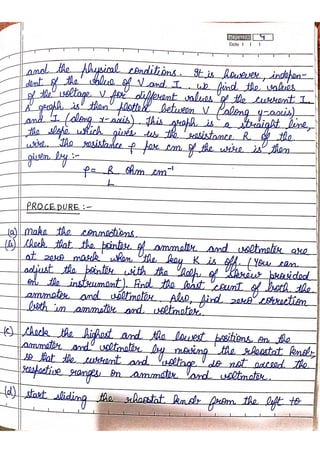 Experiment 4
Date / /
and the physical conditions. It is however, indepen-
dent of the value of V and I. we find the values
of the voltage V for different values of the current I.
A graph is then plotted between V (along y-axis)
and I (along x-axis). This graph is a straight line,
the slope which gives us the resistance R of the
wire. The resistance ρ per cm of the wire is then
given by :-
ρ = R ohm cm⁻¹
L
PROCEDURE :-
(a) make the connections.
(b) Check that the pointer of ammeter and voltmeter are
at zero mark when the key K is off. (You can
adjust the pointer with the help of screw provided
on the instrument). Find the least count of both the
ammeter and voltmeter. Also, find zero correction
both in ammeter and voltmeter.
(c) Check the highest and the lowest positions on the
ammeter and voltmeter by moving the rheostat knob
so that the current and voltage do not exceed the
respective ranges on ammeter and voltmeter.
(d) start sliding the rheostat knob from the left to